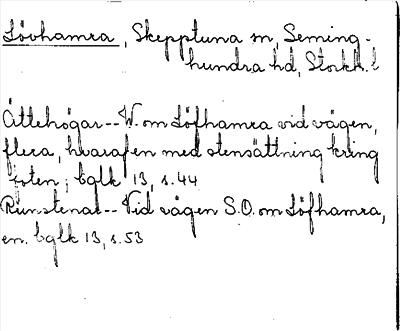 Lövhamra, Skepptuna sn, Seming-
hundra hd, Stockh. l
Ättehögar -- W. om Löfhamra vid vägen,
flera, hvaraf en med stensättning kring
foten; bglk 13, s. 44
Runstenar -- Vid vägen S.O. om Löfhamra,
en. bglk 13, s. 53